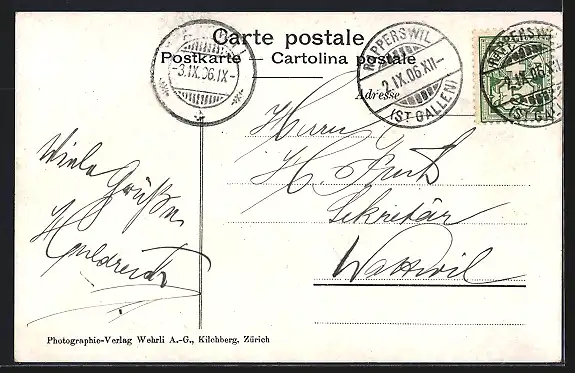 Carte postale
Postkarte – Cartolina postale
3.IX.06.IX–
RAPPERSWIL
2.IX.06.XII–
(ST. GALLEN)
RAPPERSWIL
IX.06.XII–
(ST. GALLEN)
Adresse
Herrn
H.
Sekretär
Wattwil
Viele
Grüße
Photographie-Verlag Wehrli A.-G., Kilchberg, Zürich